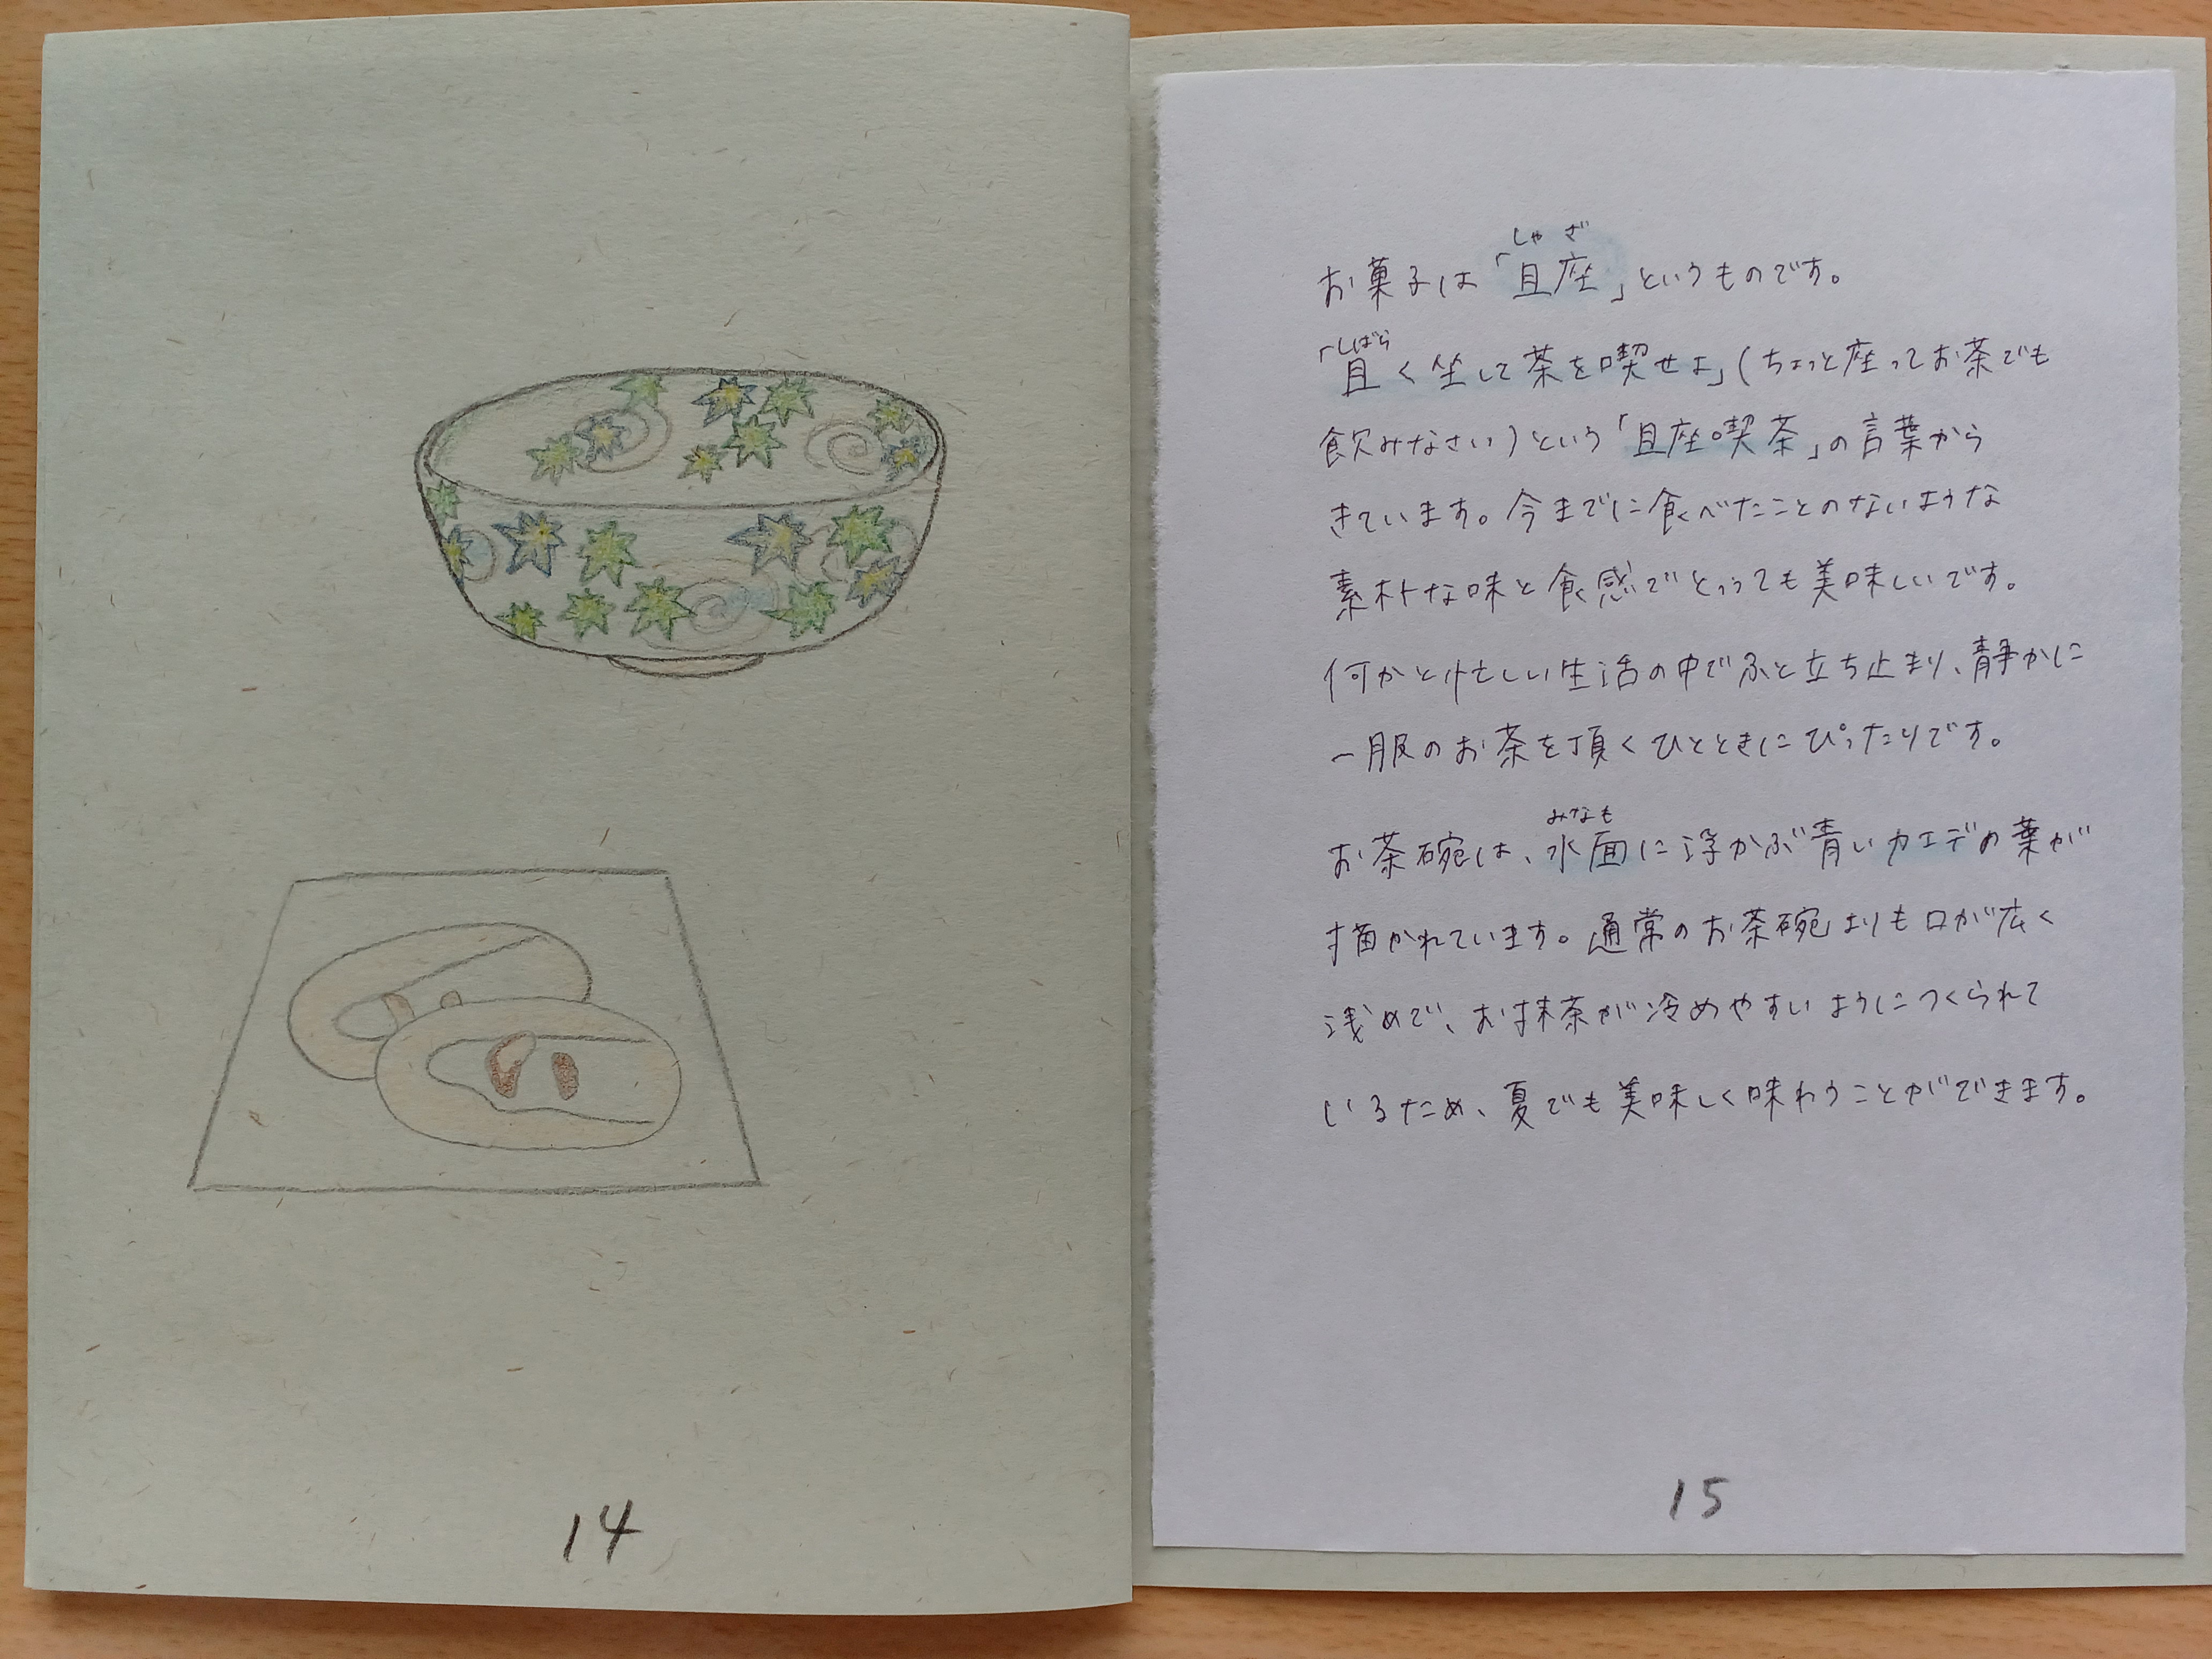 14
しゃざ
お菓子は「且座」というものです。
しばら
「且く坐して茶を喫せよ」(ちょっと座ってお茶でも
飲みなさい)という「且座喫茶」の言葉から
きています。今までに食べたことのないような
素朴な味と食感でとっても美味しいです。
何かと忙しい生活の中でふと立ち止まり、静かに
一服のお茶を頂くひとときにぴったりです。
みなも
お茶碗は、水面に浮かぶ青いカエデの葉が
描かれています。通常のお茶碗よりも口が広く
浅めで、お抹茶が冷めやすいようにつくられて
いるため、夏でも美味しく味わうことができます。
15